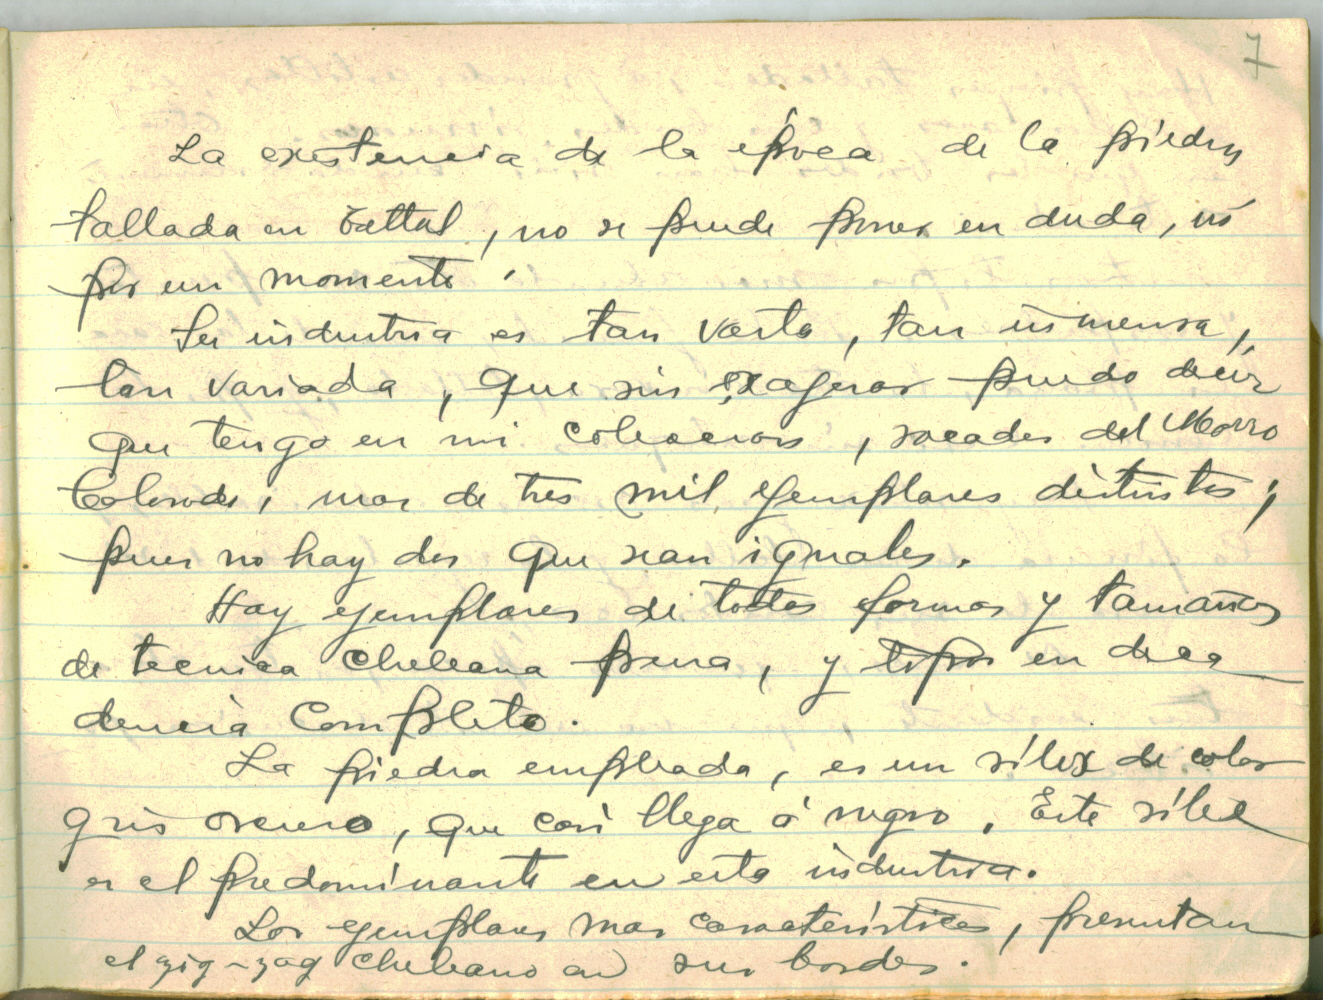 7
La existencia de la época de la piedra
tallada en Taltal, no se puede poner en duda, ni
por un momento.
Su industria es tan vasta, tan inmensa,
tan variada, que sin exagerar puedo decir
que tengo en mi coleccion, sacados del Morro
Colorado, mas de tres mil ejemplares distintos;
pues no hay dos que sean iguales.
Hay ejemplares de todas formas y tamaños
de tecnica cheleana pura, y tipos en deca
dencia completa.
La piedra empleada, es un sílex de color
gris oscuro, que casi llega á negro. Este sílex
es el predominante en esta industria.
Los ejemplares mas característicos, presentan
el zig-zag cheleano en sus bordes.